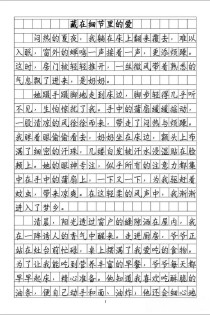 藏在细节里的爱
闷热的夏夜，我躺在床上翻来覆去，难以
入眠，窗外的蝉鸣一声接着一声，更添烦躁。
这时，房门被轻轻推开，一丝微风带着熟悉的
气息飘了进来，是奶奶。
她蹑手蹑脚地走到床边，脚步轻得几乎听
不见，生怕惊扰了我。手中的蒲扇缓缓摇动，
一股清凉的风徐徐带来，赶走了些许烦躁。我
眯着眼偷偷看去，奶奶坐在床边，额头上布
满了细密的汗珠，几缕白发被汗水浸湿贴在脸
颊上。她的眼神专注，似乎所有的注意力都集
中在手中的蒲扇上，一下又一下，为我驱赶着
蚊虫，带来凉爽。在这轻柔的风声中，我渐渐
进入了梦乡。
清晨，阳光透过窗户的缝隙洒在屋内，我
在一阵诱人的香气中醒来。走出厨房，爷爷正
站在灶台前忙碌，桌上摆满了我爱吃的食物。
为了让我能吃到营养丰富的早餐，爷爷每天都
早早起床，精心准备。他知道我喜欢吃酥脆的
油条，便自己动手和面、油炸；他还会细心地
1